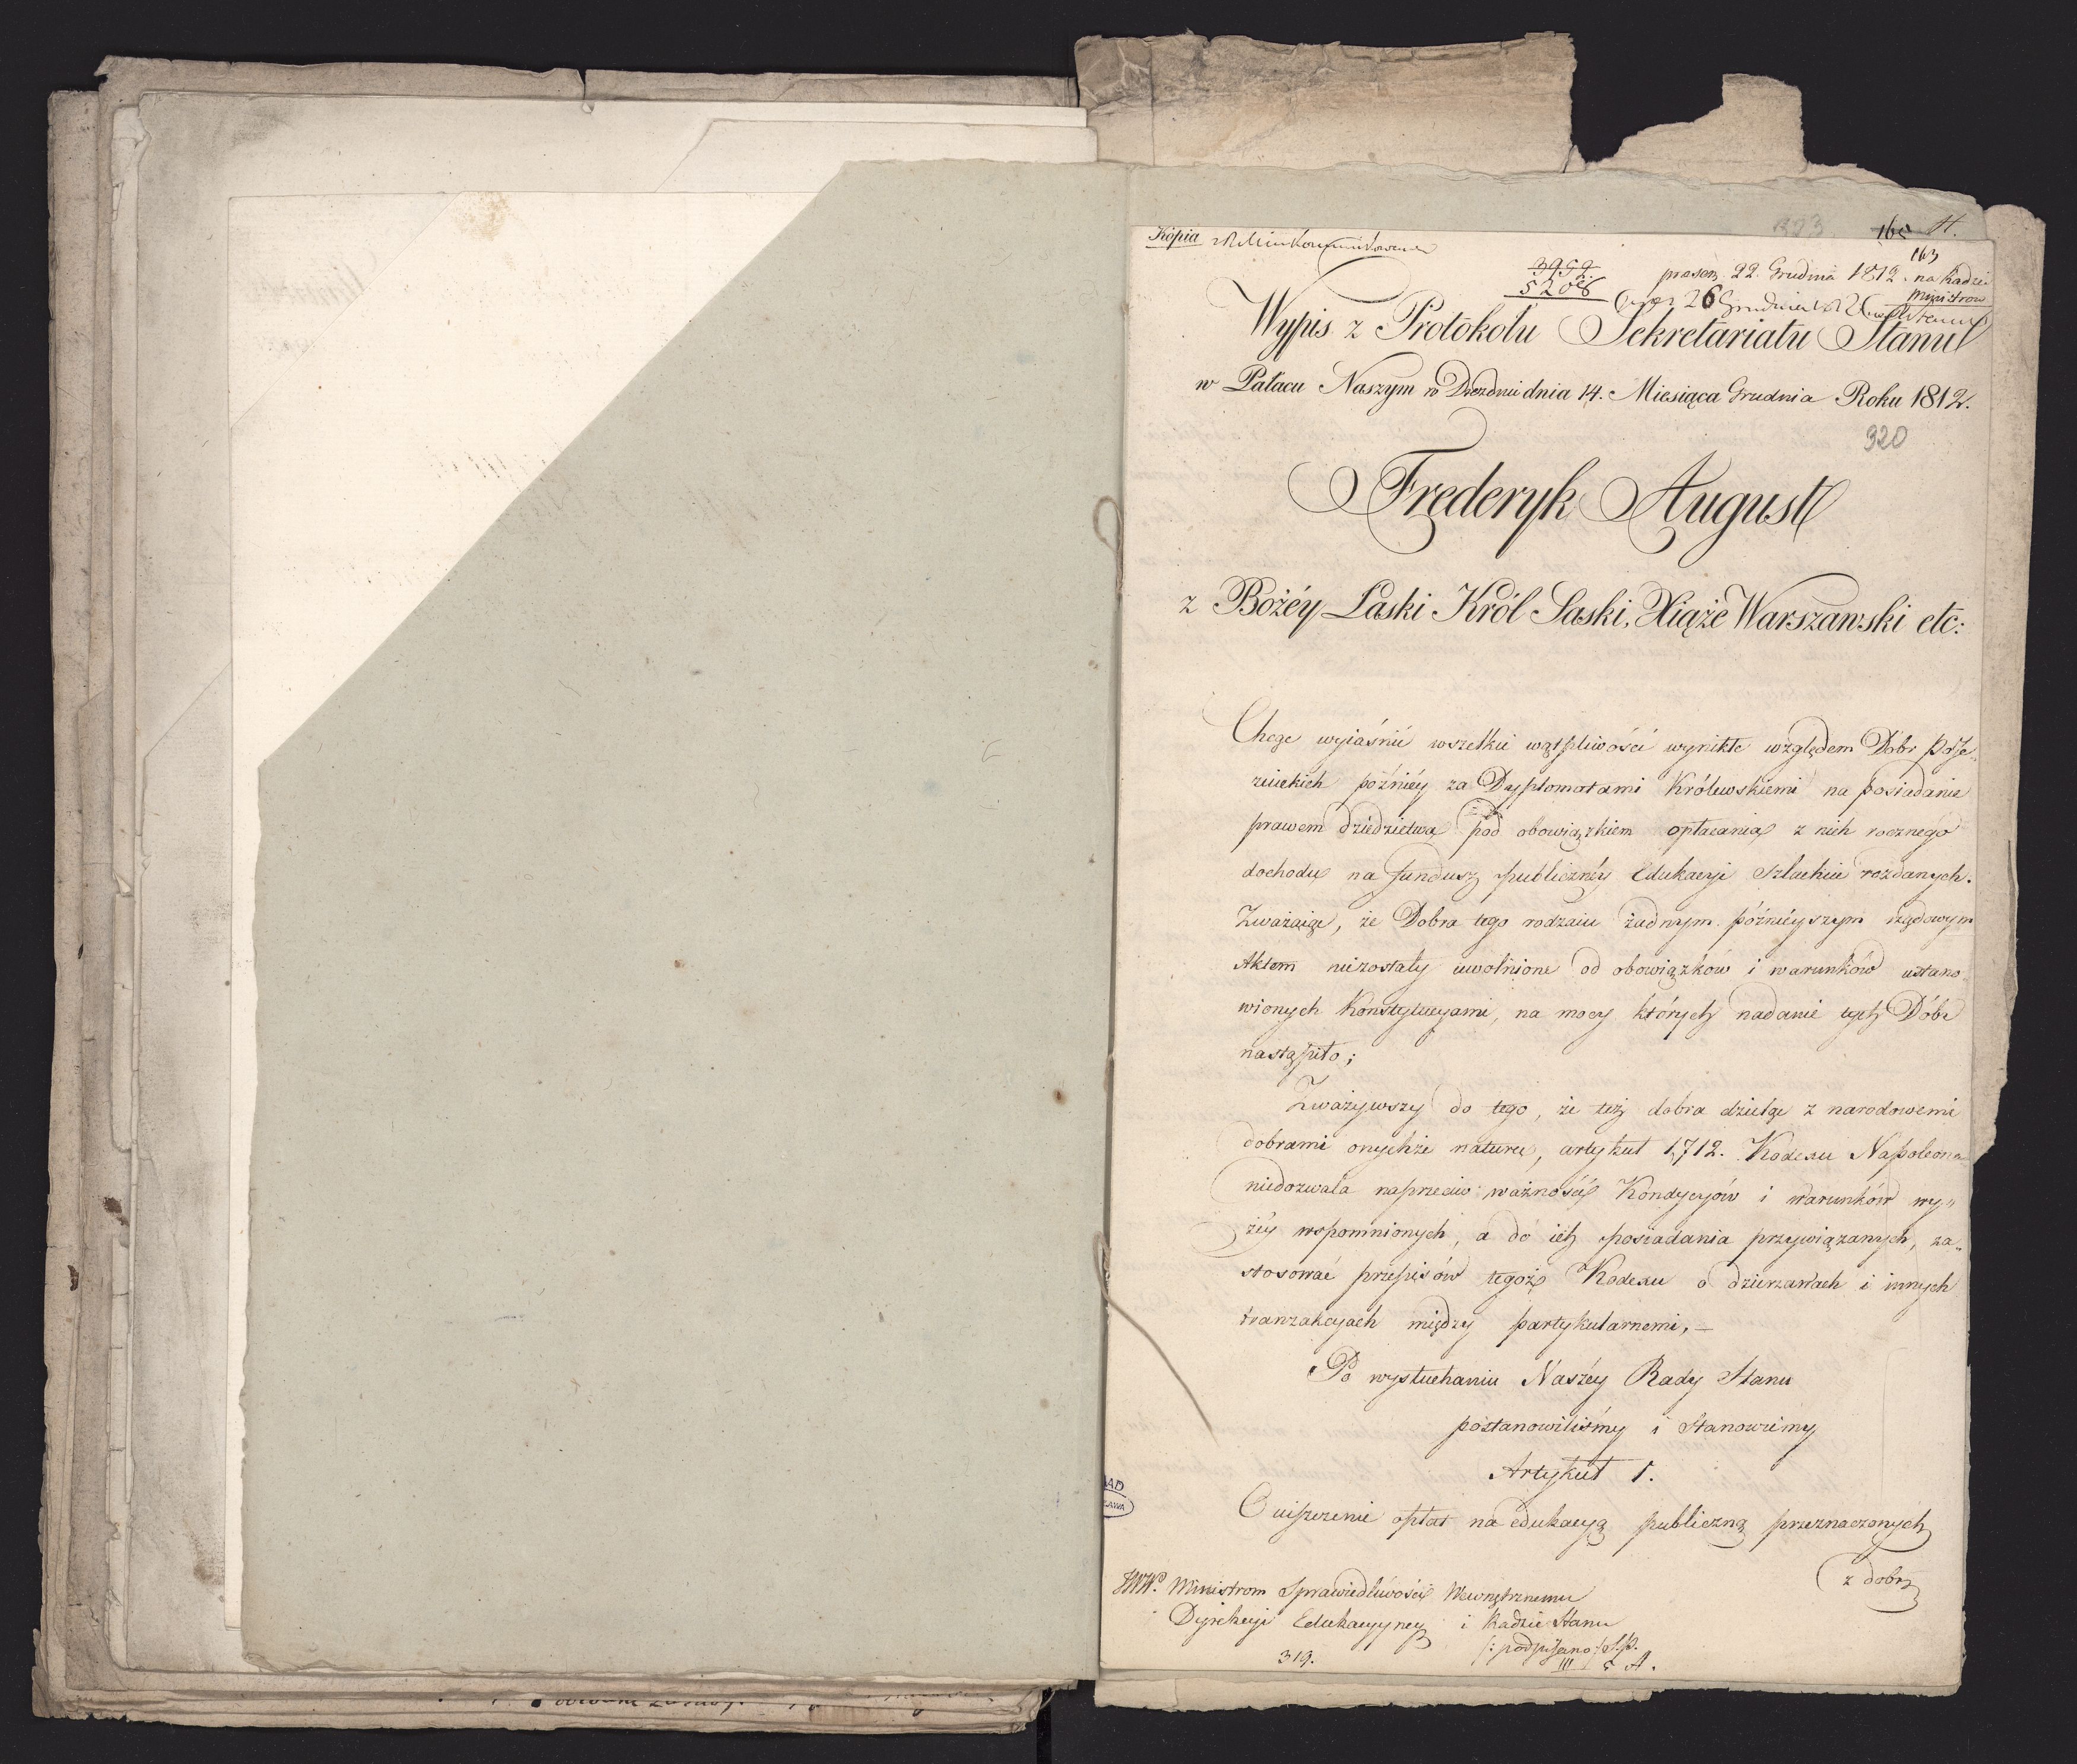 Kopia
323
165
163
3952.
5208
praesen. 22. Grudnia 1812. na Radzie
Ministrow
26 Grudnia
Wypis z Protokołu Sekretariatu Stanu
w Pałacu Naszym w Dreznie dnia 14. Miesiąca Grudnia Roku 1812.
320
Frederyk August
z Bożéy Łaski Król Saski, Xiąże Warszawski etc:
Chcąc wyiaśnić wszelkie wątpliwości wynikłe względem Dóbr poJe„
zuickich poźniéy za Dyplomatami Królewskiemi na posiadanie
prawem dziedzictwa pod obowiązkiem opłacania z nich rocznego
dochodu na fundusz publicznéy Edukacyi Szlachcie rozdanych.
Zważaiąc, że Dobra tego rodzaiu żadnym późnieyszym rządowym
Aktem niezostały uwolnione od obowiązków i warunków ustano„
wionych Konstytucyami, na mocy których nadanie tych Dóbr
nastąpiło;
Zważywszy do tego, że też dobra dzieląc z narodowemi
dobrami onychże naturę, artykuł 1,712. Kodexu Napoleona
niedozwala naprzeciw ważności Kondycyów i warunków wy„
żéy wspomnionych, a do ich posiadania przywiązanych, za„
stosować przepisów tegoż Kodexu o dzierzawach i innych
tranzakcyach między partykularnemi, —
Po wysłuchaniu Naszéy Rady Stanu
postanowiliśmy i Stanowimy
Artykuł 1.
Ouiszczenie opłat na edukacyą publiczną przeznaczonych
z dobr
JWW. Ministrom Sprawiedliwości Wewnętrznemu
Dyrekcyi Edukacyyney i Radzie Stanu
/: podpisano :/
319.